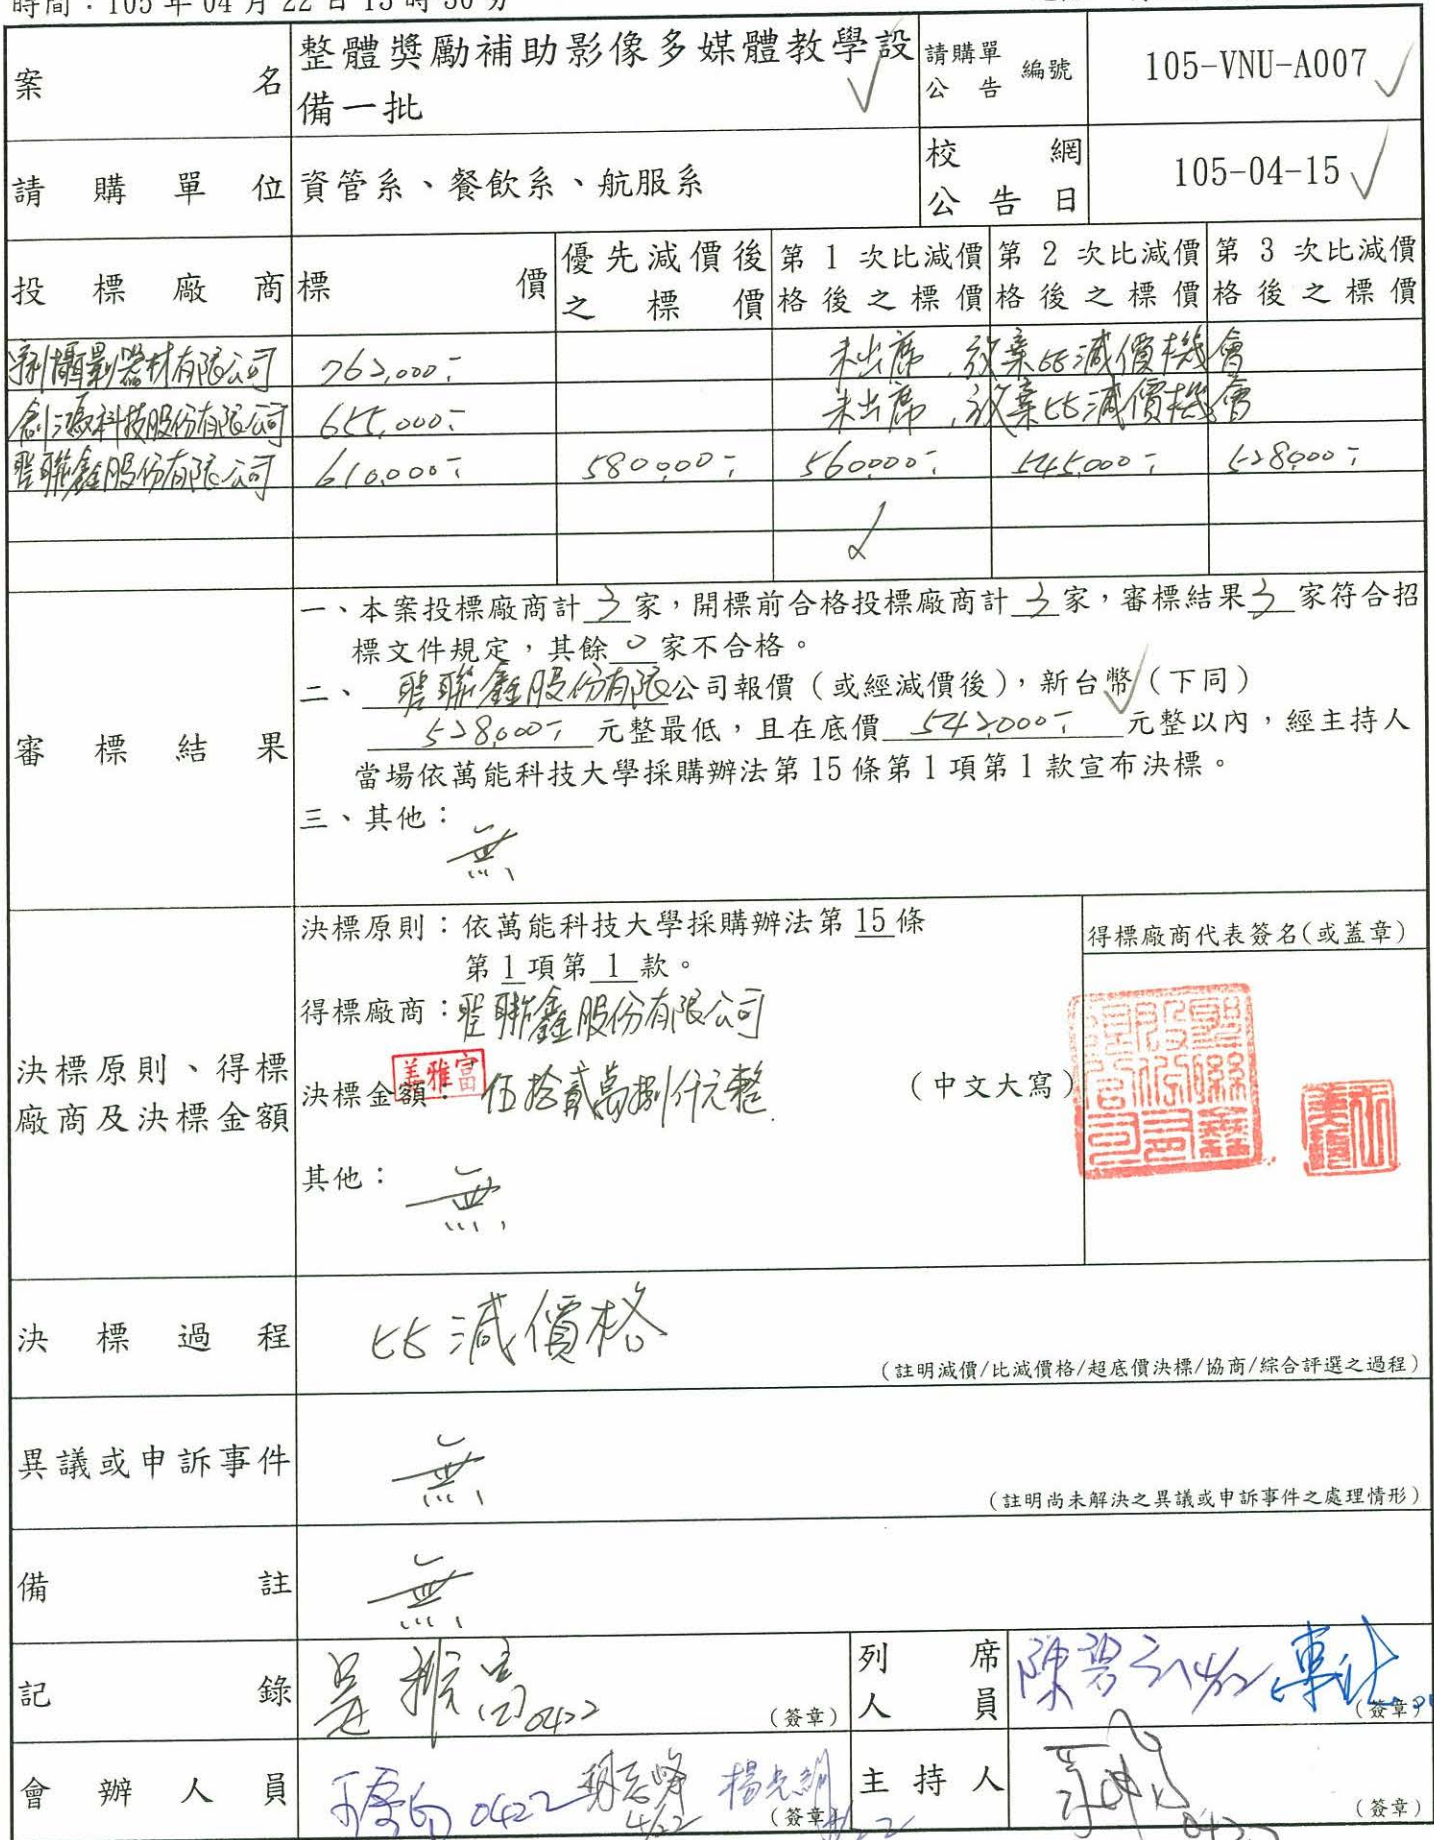 時間：105 年 04 月 22 日 15 時 30 分
案名
整體獎勵補助影像多媒體教學設
備一批
請購單
公告
編號
105-VNU-A007
請購單位
資管系、餐飲系、航服系
校網
公告日
105-04-15
投標廠商
標價
優先減價後
之標價
第 1 次比減價
格後之標價
第 2 次比減價
格後之標價
第 3 次比減價
格後之標價
攝影器材有限公司
762,000-
未出席，放棄比減價機會
創鴻科技股份有限公司
655,000-
未出席，放棄比減價機會
聖聯鑫股份有限公司
610,000-
580,000-
560,000-
545,000-
528,000-
審標結果
一、本案投標廠商計 3 家，開標前合格投標廠商計 3 家，審標結果 3 家符合招
標文件規定，其餘 0 家不合格。
二、聖聯鑫股份有限公司報價（或經減價後），新台幣（下同）
528,000- 元整最低，且在底價 542,000- 元整以內，經主持人
當場依萬能科技大學採購辦法第 15 條第 1 項第 1 款宣布決標。
三、其他：
無
決標原則、得標
廠商及決標金額
決標原則：依萬能科技大學採購辦法第 15 條
第 1 項第 1 款。
得標廠商：聖聯鑫股份有限公司
決標金額：伍拾貳萬捌仟元整
（中文大寫）
其他：
無
得標廠商代表簽名(或蓋章)
決標過程
比減價格
（註明減價/比減價格/超底價決標/協商/綜合評選之過程）
異議或申訴事件
無
（註明尚未解決之異議或申訴事件之處理情形）
備註
無
記錄
0422
（簽章）
列席
人員
陳碧 4/22
（簽章）
會辦人員
0422
4/22
楊
（簽章）
主持人
0422
（簽章）